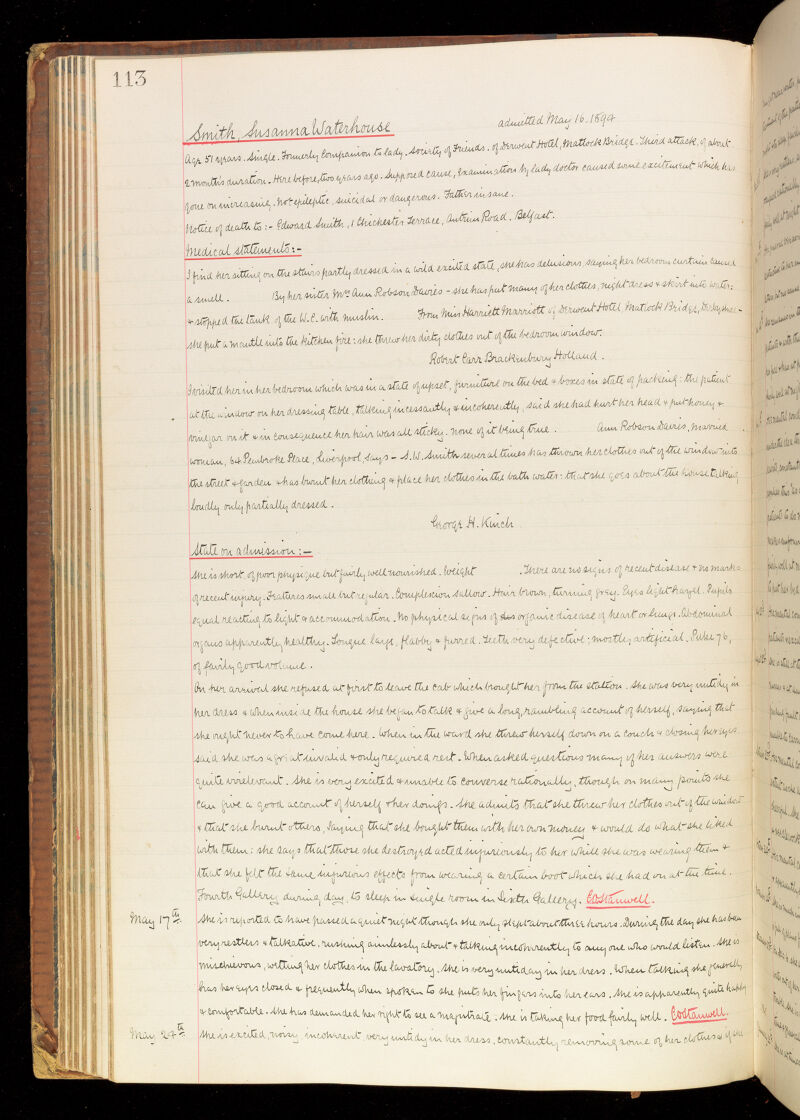 113
Smith, Susanna Waterhouse admitted May 16. 1894
Age 51 years. Single. Formerly Companion to lady. Society of Friends. of Derwent Hotel, Matlock Bridge. Third attack, of about
2 months duration. Here before, two years ago. Supposed cause, Examination by lady doctor caused some excitement which has
gone on increasing. Not epileptic, suicidal or dangerous. Father insane.
Notice of death to :- Edward Smith, 1 Chichester Terrace, Antrim Road. Belfast.
Medical statements :-
I find her sitting on the stairs partly dressed in a wild excited state, she has delusions, saying her bedroom curtain caused
a smell. By her sister Mrs Ann Robson Davies - she has put many of her clothes, night dress & skirt into water:
& stopped the tank of the W.C. with muslin. From Miss Harriett Marriott of Derwent Hotel, Matlock Bridge, Derbyshire -
she put a mantle into the kitchen fire: she threw her dirty clothes out of the bedroom window.
Robert Carr Brackenbury Holland.
I visited her in her bedroom which was in a state of upset, furniture on the bed & boxes in state of packing: the patient
at the window on her dressing table, talking incessantly & incoherently, said she had hurt her head & put honey &
vinegar on it & in consequence her hair was all sticky. none of it being true. Ann Robson Davies, married
woman, 64 Pembroke Place, Liverpool, says - S.W. Smith several times has thrown her clothes out of the window into
the street & garden & has burnt her clothing & place her clothes in the bath water: that she goes about the house talking
loudly only partially dressed.
George H. Kinch.
State on admission :-
She is short, of poor physique but fairly well nourished. Weight . There are no signs of recent disease & no marks
of recent injury. Features small but regular. Complexion sallow. Hair brown, turning grey. Eyes light hazel. Pupils
equal reacting to light & accommodation. No physical signs of organic disease of heart or lungs. Abdominal
organs apparently healthy. Tongue large, flabby & furred. Teeth very defective; mostly artificial. Pulse 76,
of fairly good volume.
On her arrival she refused at first to leave the cab which brought her from the station. She was very untidy in
her dress & when inside the house she began to talk & give a long, rambling account of herself, saying that
she ought never to have come here. When in the ward she threw herself down on a couch & closing her eyes
said she was a great invalid & only required rest. When asked questions many of her answers were
quite irrelevant. She is very excited & unable to converse rationally, though on many points she
can give a good account of herself & her doings. She admits that she threw her clothes out of the window
& that she burnt others, saying that she bought them with her own money & would do what she liked
with them: she says that those she destroyed acted injuriously to her while she was wearing them &
that she felt the same injurious effects from wearing a certain boot which she had on at the time.
Fourth Gallery during day, to sleep in single room in Sixth Gallery.
May 17th She is reported to have passed a quiet night though she only slept about three hours. During the day she has been
very restless & talkative, rushing aimlessly about & talking incoherently to any one who would listen. She is
mischievous, wetting her clothes in the lavatory. She is very untidy in her dress. When talking she generally
has her eyes closed & frequently when spoken to she puts her fingers into her ears. She is apparently quite happy
& comfortable. She has demanded her right to see a magistrate. She is taking her food fairly well.
May 24th She is excited, noisy, incoherent very untidy in her dress, constantly removing some of her clothes &